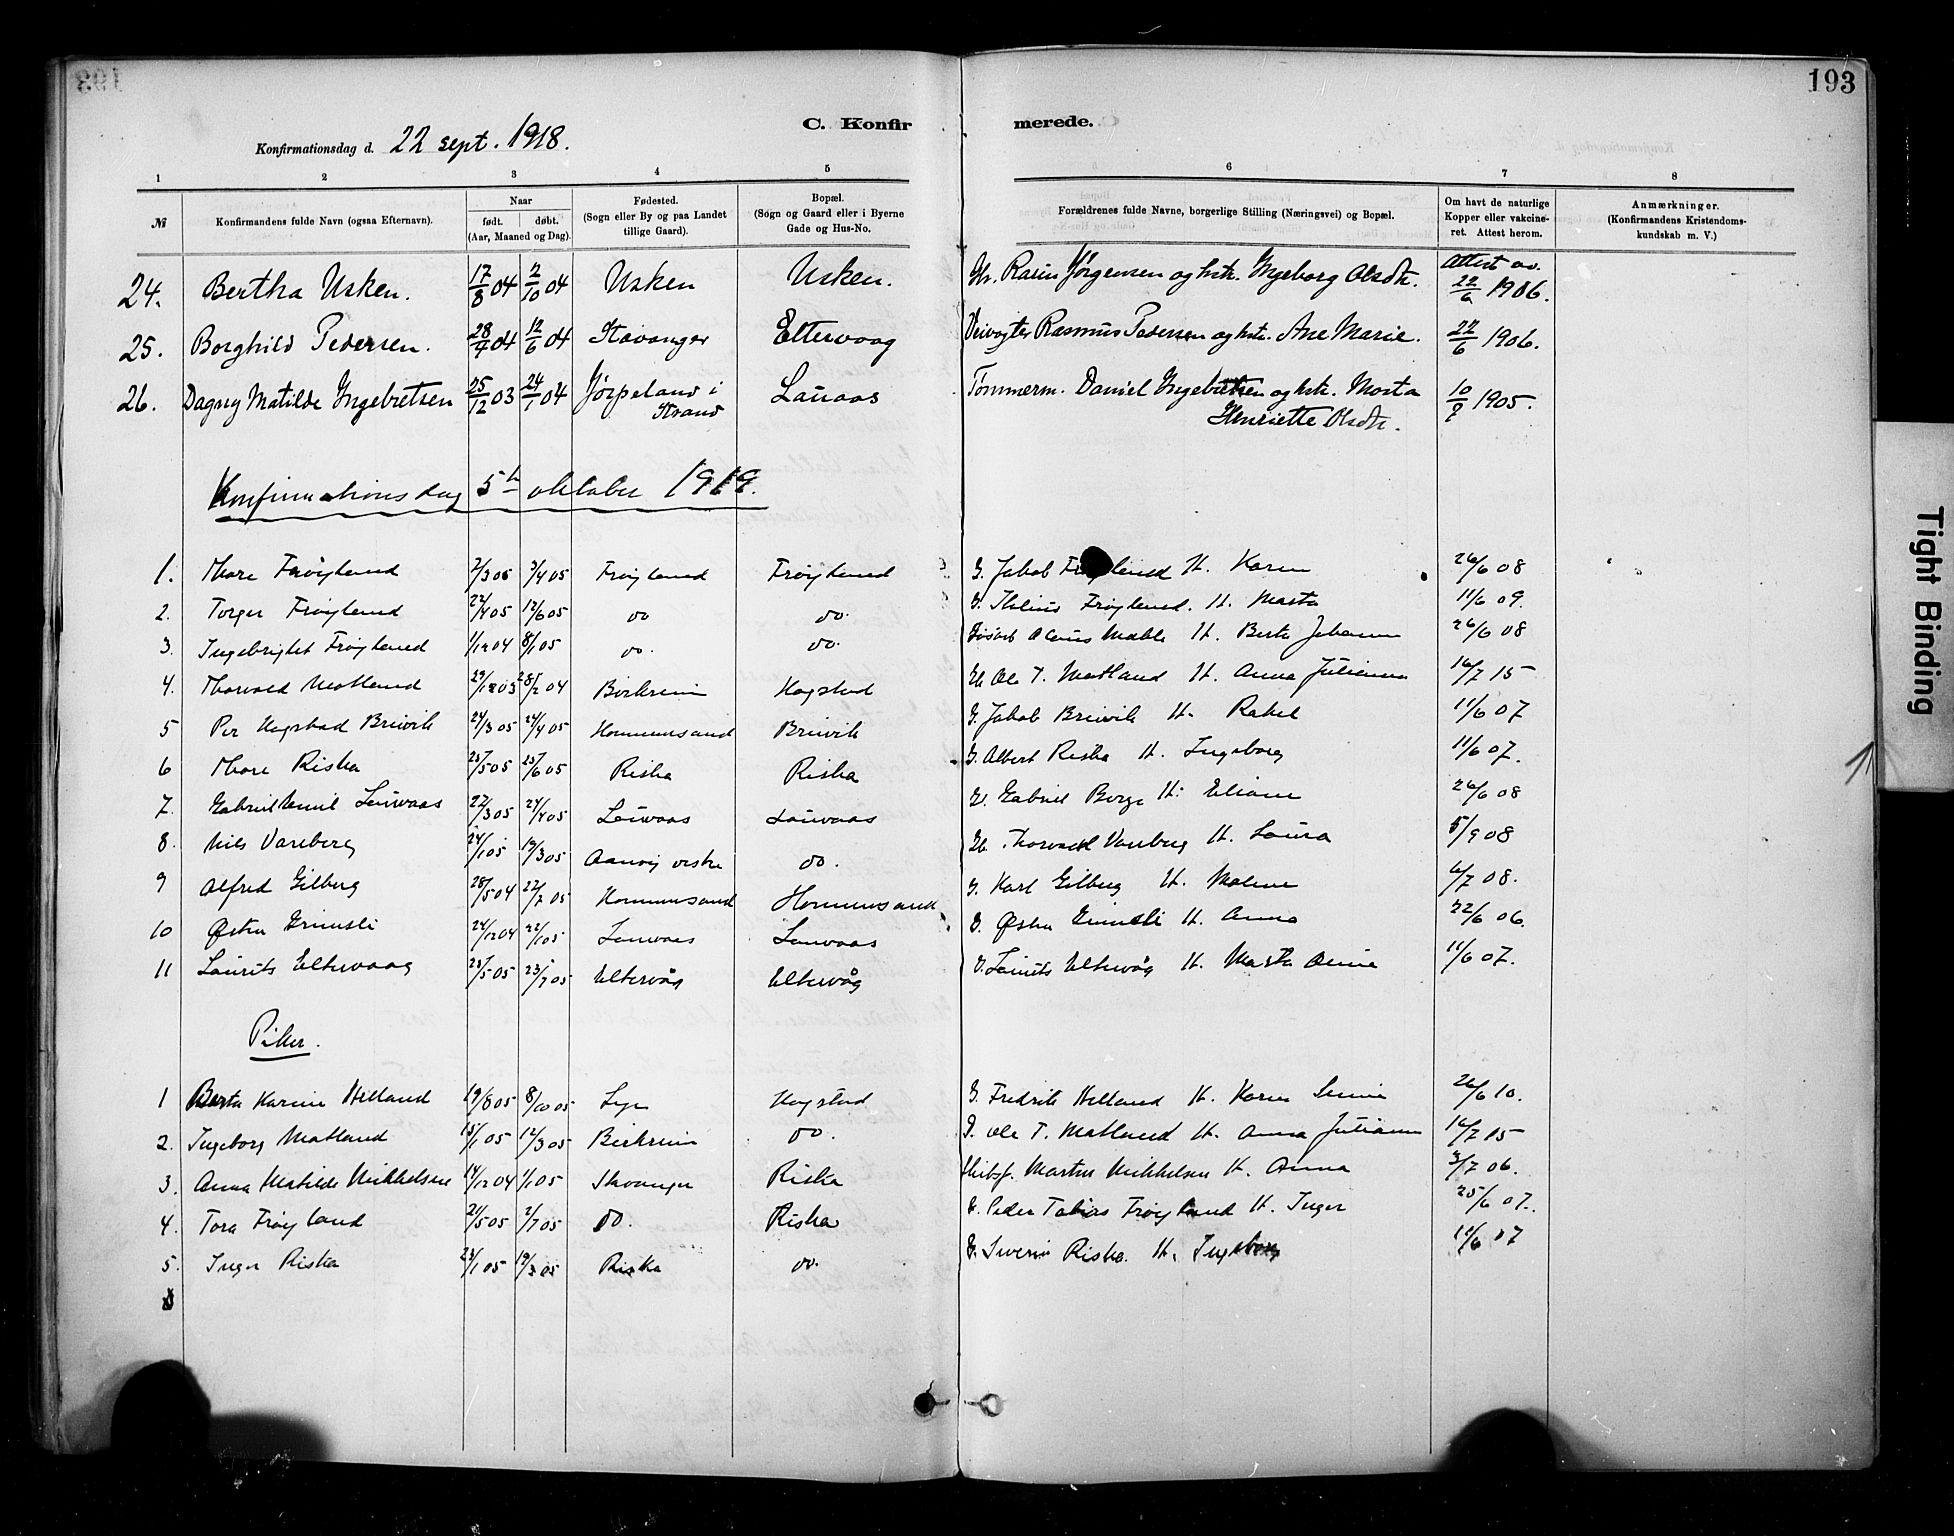 193
C. Konfirmerede.
Konfirmationsdag d. 22 sept. 1918.
1 2 3 4 5 6 7 8
№ Konfirmandens fulde Navn (ogsaa Efternavn). Naar født. døbt. (Aar, Maaned og Dag). Fødested. (Sogn eller By og paa Landet tillige Gaard). Bopæl. (Sogn og Gaard eller i Byerne Gade og Hus-No. Forældrenes fulde Navne, borgerlige Stilling (Næringsvei) og Bopæl. Om havt de naturlige Kopper eller vakcineret. Attest herom. Anmærkninger. (Konfirmandens Kristendomskundskab m. V.)
24. Bertha Usken. 17/8 04 2/10 04 Usken Usken. Rasm Jørgensen og hstr. Ingeborg Olsdtr. Attest av. 22/6 1906.
25. Borghild Pedersen. 28/4 04 12/6 04 Stavanger Eltervaag Veivogter Rasmus Pedersen og hstr. Ane Marie. 22/6 1906.
26. Dagny Matilde Ingebretsen 25/12 03 24/1 04 Jørpeland i Strand Lauaas Tømmerm. Daniel Ingebretsen og hstr. Marta Henriette Olsdtr. 10/7 1905.
Konfirmationsdag 5te oktober 1919.
1. Thore Frøyland 2/3 05 3/4 05 Frøyland Frøyland G. Jakob Frøyland H. Karen 26/6 08
2. Torger Frøyland 22/4 05 12/6 05 do do. Frøyland. H. Marta 11/6 09.
3. Ingebrigt Frøyland 1/12 04 8/1 05 do. do. H. Berta Johanne 26/6 08
4. Thorvald Matland 29/12 03 28/2 04 Birkrein Hogstad Ole T. Matland H. Anna Julianne 16/7 15
5 Per Hogstad Breivik 24/3 05 24/4 05 Hommersand Breivik G. Jakob Breivik H. Rakel 11/6 07
6 Thore Riska 25/5 05 25/6 05 Riska Riska G. Albert Riska H. Ingeborg 11/6 07.
7. Gabriel Emil Lauvaas 22/3 05 24/4 05 Lauvaas Lauvaas G. Gabriel Borge H. Eliane 26/6 08
8. Nils Vareberg 24/1 05 19/3 05 vestre do. Thorvald Vareberg H. Laura 5/9 08
9 Alfred Gilberg 28/5 04 22/7 05 Hommersand Hommersand G. Karl Gilberg H. Malene 6/7 08.
10 Østen Grimsli 24/12 04 22/1 05 Lauvaas Lauvaas G. Østen Grimsli H. Anna 22/6 06.
11 Laurits Eltervaag 28/5 05 23/7 05 Eltervåg Eltervåg G. Laurits Eltervåg H. Marta 11/6 07.
Piker.
1 Berta Karine Helland 19/8 05 8/10 05 Lye Hogstad G. Fredrik Helland H. Karen 26/6 10.
2. Ingeborg Matland 15/1 05 12/3 05 Birkrein do. Ole T. Matland H. Anna Julianne 16/7 15
3. Anna Matilde Mikkelsen 14/12 04 1/1 05 Stavanger Riska Martin Mikkelsen H. Anna 3/7 06.
4. Tora Frøyland 21/5 05 2/7 05 do. Riska G. Peder Tobias Frøyland H. Inger 25/6 07.
5. Inger Riska 23/1 05 19/3 05 Riska do. G. Riska. H. Ingeborg 11/6 07
Tight Binding